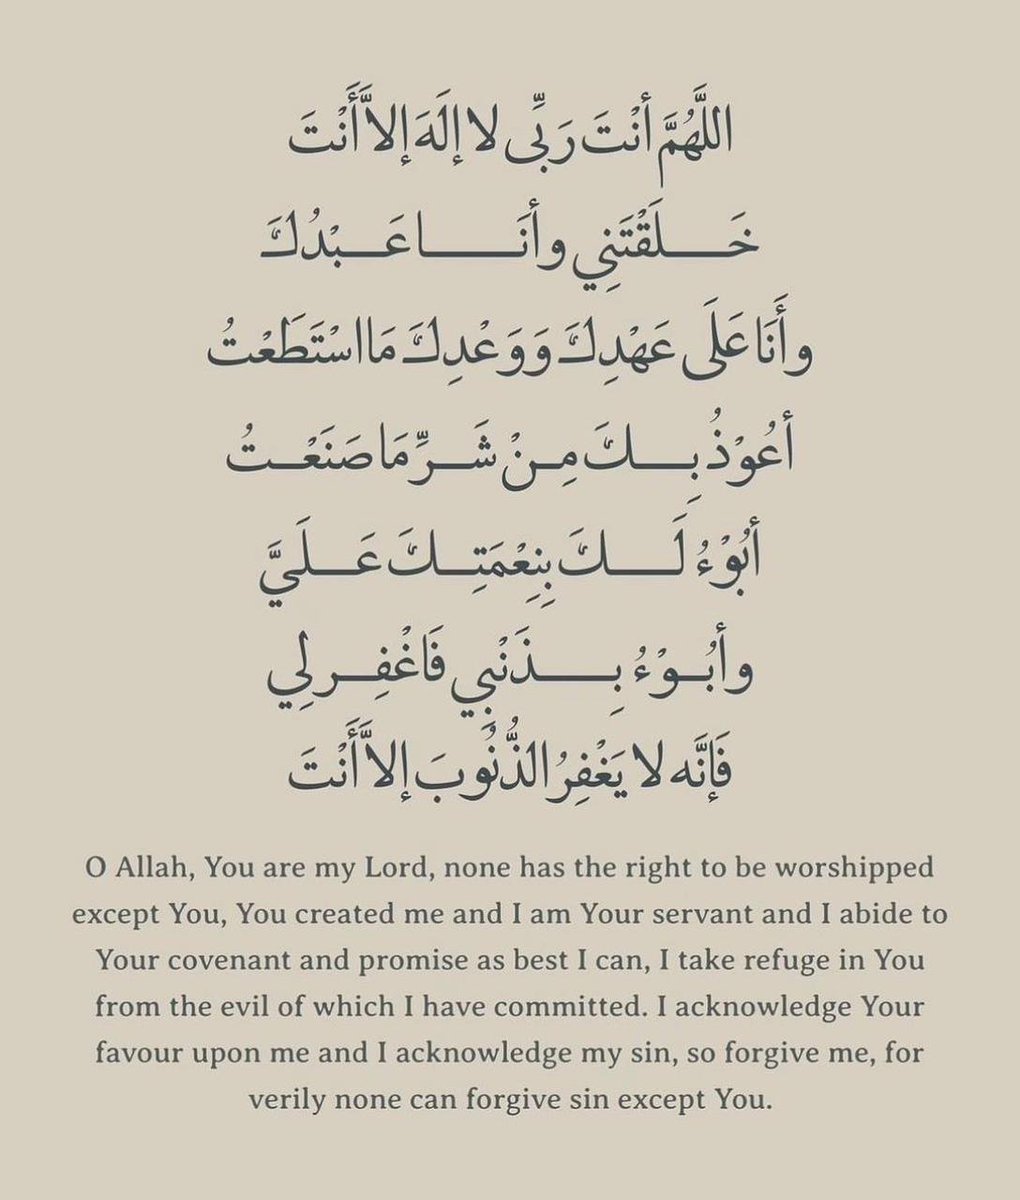 اللَّهُمَّ أنْتَ رَبِّى لا إلَهَ إلاَّ أَنْتَ
خَـــلَقْتَنِي وأنَـــــا عَـــبْدُكَ
وأَنَا عَلَى عَهْدِكَ وَوَعْدِكَ مَا اسْتَطَعْتُ
أعُوْذُ بِـــكَ مِـنْ شَـــرِّ مَا صَنَعْـــتُ
أبُوْءُ لَـــكَ بِنِعْمَتِـــكَ عَـــلَيَّ
وأبُـــوْءُ بِـــــذَنْبِي فَاغْفِـــر لِي
فَإنَّه لا يَغْفِرُ الذُّنُوبَ إلاَّ أَنْتَ
O Allah, You are my Lord, none has the right to be worshipped
except You, You created me and I am Your servant and I abide to
Your covenant and promise as best I can, I take refuge in You
from the evil of which I have committed. I acknowledge Your
favour upon me and I acknowledge my sin, so forgive me, for
verily none can forgive sin except You.